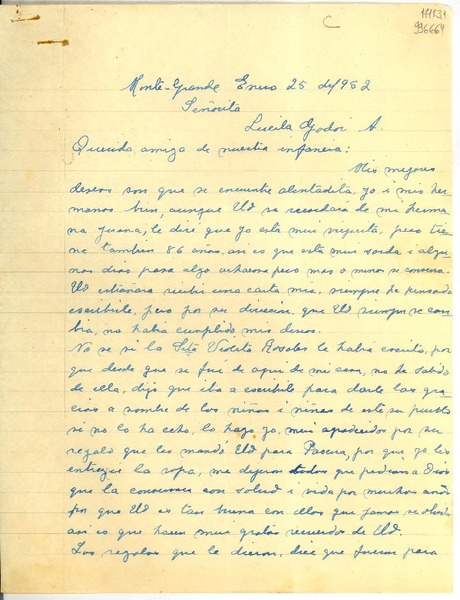 C
111131
996664
Monte-Grande Enero 25 de 1952
Señorita
Lucila Godoi A.
Querida amiga de nuestra infancia:
Mis mejores
deseos son que se encuentre alentadita, yo i mis her
manos bien, aunque Ud se recordará de mi herma
na Juana, le diré que ya está mui viejita, pero tie
ne tambien 86 años, asi es que está mui sorda i algu
nos dias pasa algo achacosa pero mas o menos se conserva.
Ud estrañará recibir una carta mia, siempre he pensado
escribirle, pero por su direccion, que Ud siempre se cam
bia, no habia cumplido mis deseos.
No se si la Srta Violeta Rosales le habrá escrito, por
que desde que se fué de aqui de mi casa, no he sabido
de ella, dijo que iba a escribirle para darle las gra
cias a nombre de los niños i niñas de este su pueblo
si no lo ha echo, lo hago yo, mui agradecidos por su
regalo que les mandó Ud para Pascua, por que yo les
entregué la ropa, me dijeron todos que pedirian a Dios
que la conservara con salud i vida por muchos años
por que Ud es tan buena con ellos que jamas se olvida
asi es que hacen mui gratos recuerdos de Ud.
Los regalos que le dieron, dice que fueron para